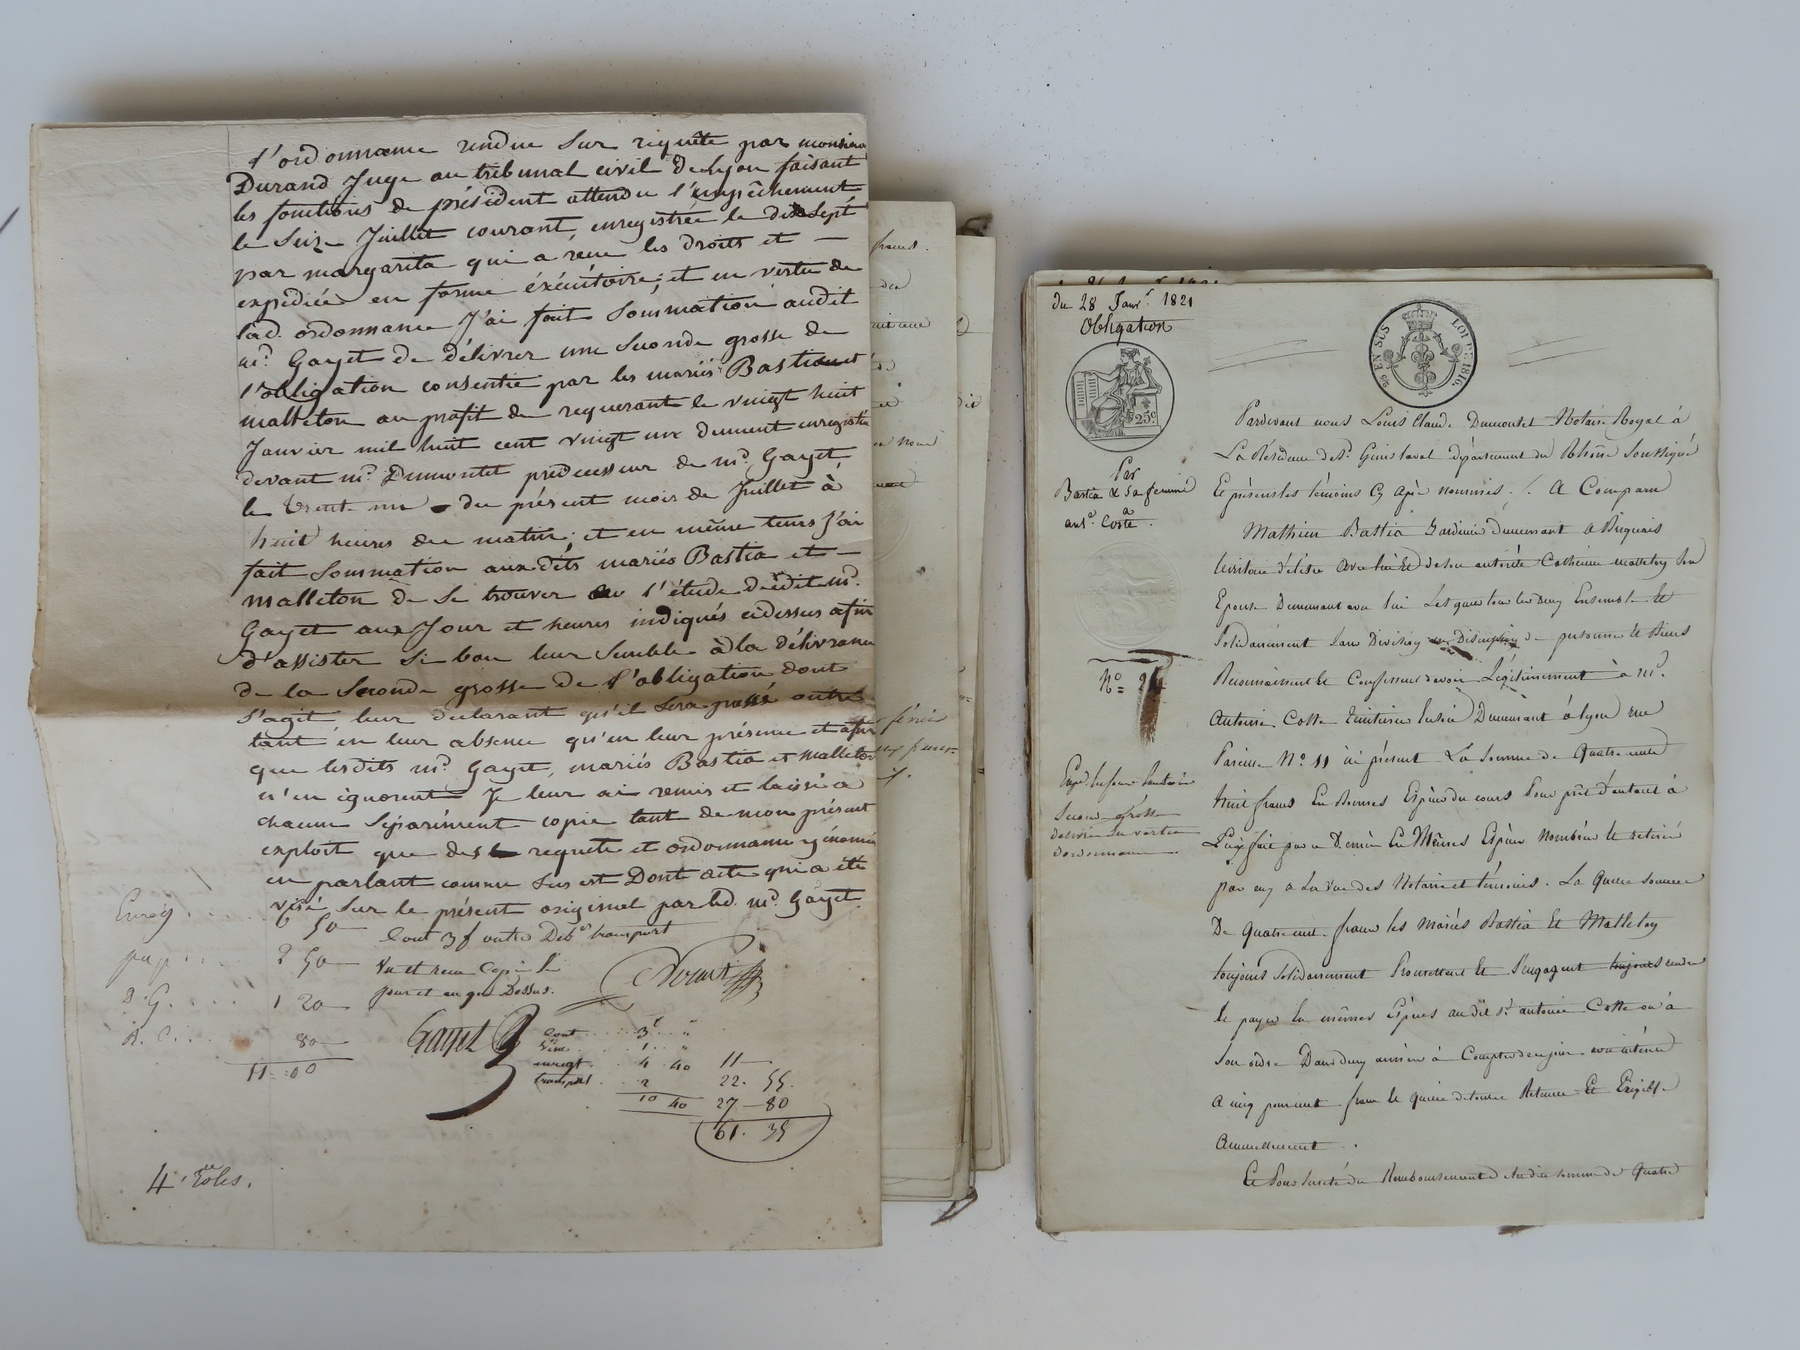 l'ordonnance rendue sur requête par monsieur
Durand Juge au tribunal civil de Lyon faisant
les fonctions de président attendu l'empêchement
le seize Juillet courant, enregistrée le dix sept
par margarita qui a reçu les droits et —
expédiée en forme éxécutoire; et en vertu de
lad. ordonnance J'ai fait sommation audit
mᵉ. Gayet de délivrer une seconde grosse de
l'obligation consentie par les mariés Bastia et
malleton au profit du requerant le vingt huit
Janvier mil huit cent vingt un dument enregistrée
devant mᵉ. Dumontet prédecesseur de mᵉ. Gayet
le trente un du présent mois de Juillet à
huit heures du matin; et en même tems J'ai
fait sommation aux dits mariés Bastia et —
malleton de se trouver en l'étude dudit mᵉ.
Gayet aux Jour et heures indiqués cidessus afin
d'assister si bon leur semble à la délivrance
de la seconde grosse de l'obligation dont
s'agit leur declarant qu'il sera passé outre
tant en leur absence qu'en leur présence et afin
que lesdits mᵉ. Gayet, mariés Bastia et malleton
n'en ignorent Je leur ai remis et laissé a
chacun séparément copie tant de mon présent
exploit que des requête et ordonnance y énoncées
en parlant comme sus est Dont acte qui a été
visé sur le présent original par led. mᵉ. Gayet.
Cout 3 f outre Deb.ˢ transport
Enreg. 6 50
pap. 2 50
D. G. 1 20
R. C. 80
11 00
Vu et reçu Copie le
jour et an que Dessus.
Gayet
Cout 3ᶠ "
Visa 1 "
enregt. 4 40
transport 2
10 40
11
22. 55.
27 — 80
61. 35
4 rôles.
du 28 Janv.ʳ 1821
Obligation
25ᶜ
Par
Bastia & sa femme
à
ant.ᵉ Coste.
Nº 24
Seconde grosse
délivrée en vertu
d'ordonnance
EN SUS LOI DE 1816.
Pardevant nous Louis Claude Dumontet Notaire Royal à
La Résidence de St. Genis laval département du Rhône Soussigné
Et présens les témoins Cy Après nommés ./. A Comparu
Mathieu Bastia Jardinier Demeurant a Brignais
Epouse Demeurant avec lui Lesquels tous les deux Ensemble et
Solidairement sans Division de personne et Biens
Reconnaissent Et Confessent devoir Légitimement à mᵉ.
Antoine Coste Demeurant à Lyon rue
Nº 11 ici présent La Somme de Quatre cents
huit francs En Bonnes Espèces du cours Pour prêt d'autant à
En Mêmes Espèces Nombrées et retirée
par eux a La vue des Notaire et témoins. La quelle somme
De quatre cent francs les mariés Bastia Et Malleton
toujours solidairement Promettent Et S'engagent rendre
Et payer En mêmes Espèces au dit sʳ. antoine Coste ou à
Son ordre Dans deux années à Compter de ce jour avec intérêt
A cinq pour cent franc Et quitte de toute Retenue Et Exigible
Annuellement.
Et Pour sureté du Remboursement de la dite somme de Quatre